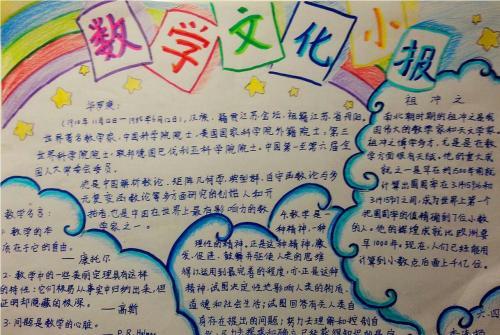 数学文化小报
华罗庚:
(1910年11月12日—1985年6月12日),汉族,籍贯江苏金坛,祖籍江苏省丹阳。
世界著名数学家,中国科学院院士,美国国家科学院外籍院士,第三
世界科学院院士,联邦德国巴伐利亚科学院院士。中国第一至第六届全
国人大常委会委员。
他是中国解析数论、矩阵几何学、典型群、自守函数论与多
元复变函数论等多方面研究的创始人和开
拓者,也是中国在世界上最有影响力的数
学家之一。
祖冲之
南北朝时期的祖冲之是我
国伟大的数学家和天文学家
祖冲之博学多才,尤其是在数
学方面很有成就。他的重大成
就之一是早在约1500年前就
计算出圆周率在3.1415926和
3.1415927之间,成为世界上第一个
把圆周率的值精确到7位小数
的人。他的辉煌成就比欧洲要
早1000年。现在,人们已经能用
计算到小数点后面上千亿位。
数学名言:
1、数学的本
质在于它的自由。
——康托尔
2、数学中的一些美丽定理具有这样
的特性:它们极易从事实中归纳出来,但
证明却隐藏的极深。
——高斯
3、问题是数学的心脏。
——P.R.Halmos
4、数学是一
种精神,一种
理性的精神。正是这种精神,激
发、促进、鼓舞并驱使人类的思维
得以运用到最完善的程度,亦正是这种
精神,试图决定性地影响人类的物质、
道德和社会生活;试图回答有关人类自
身存在提出的问题;努力去理解和控制自